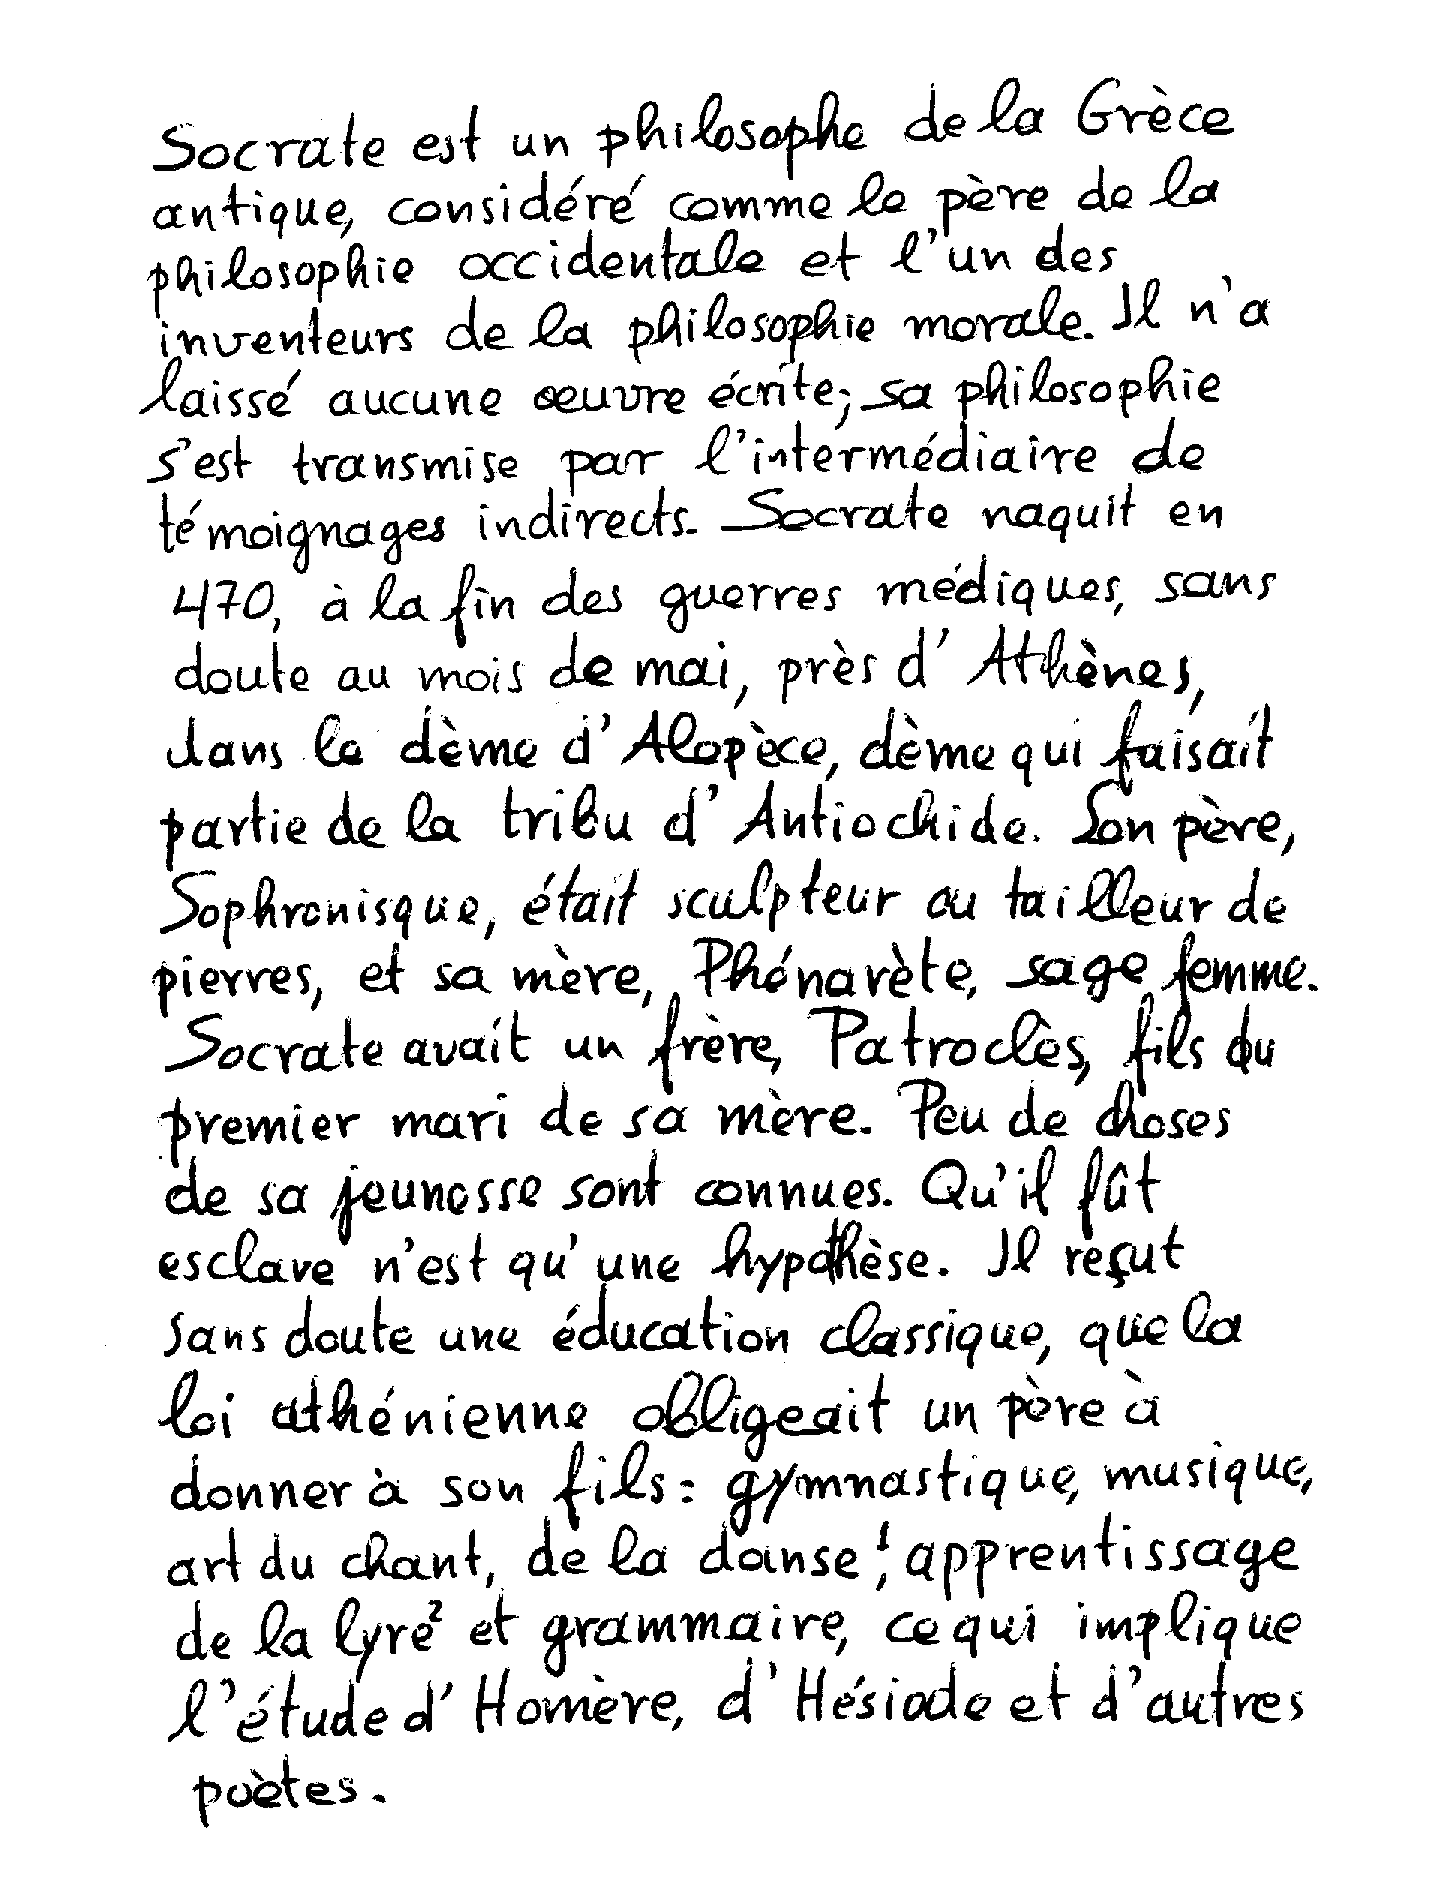 Socrate est un philosophe de la Grèce
antique, considéré comme le père de la
philosophie occidentale et l'un des
inventeurs de la philosophie morale. Il n'a
laissé aucune œuvre écrite; sa philosophie
s'est transmise par l'intermédiaire de
témoignages indirects. Socrate naquit en
470, à la fin des guerres médiques, sans
doute au mois de mai, près d'Athènes,
dans le dème d'Alopèce, dème qui faisait
partie de la tribu d'Antiochide. Son père,
Sophronisque, était sculpteur ou tailleur de
pierres, et sa mère, Phénarète, sage femme.
Socrate avait un frère, Patroclès, fils du
premier mari de sa mère. Peu de choses
de sa jeunesse sont connues. Qu'il fût
esclave n'est qu'une hypothèse. Il reçut
sans doute une éducation classique, que la
loi athénienne obligeait un père à
donner à son fils : gymnastique, musique,
art du chant, de la danse¹, apprentissage
de la lyre² et grammaire, ce qui implique
l'étude d'Homère, d'Hésiode et d'autres
poètes.